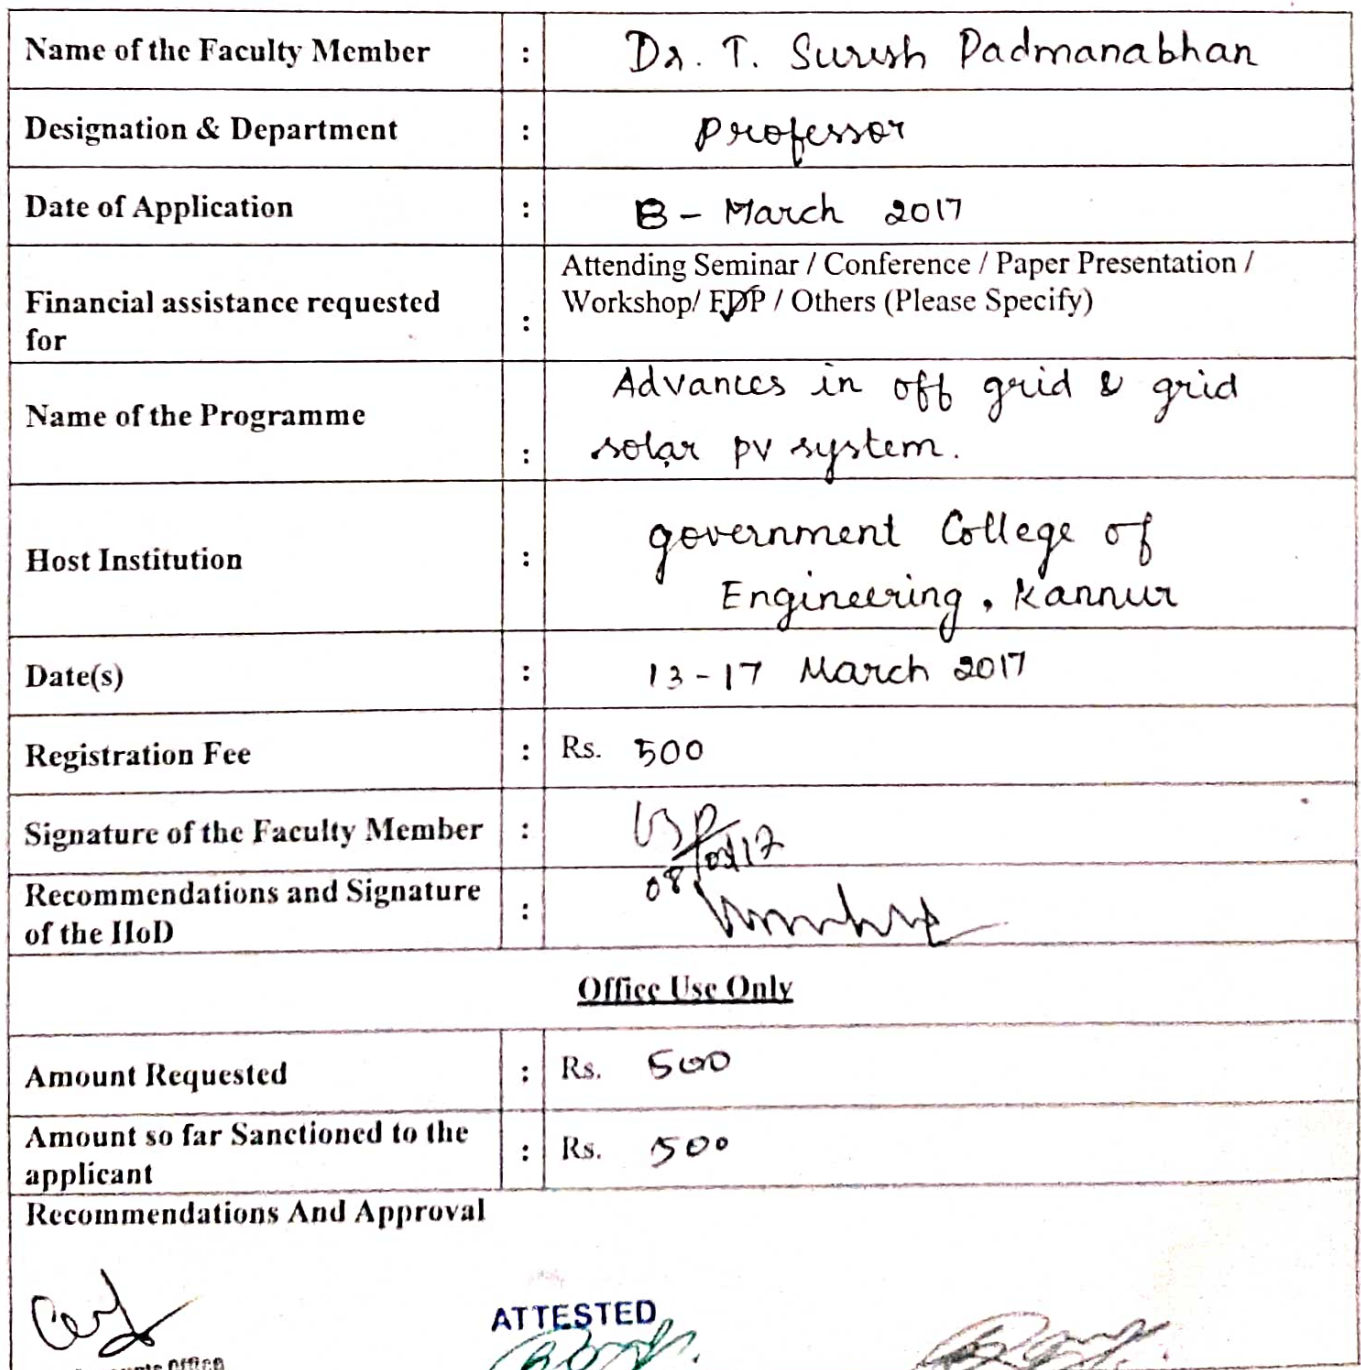 Name of the Faculty Member : Dr. T. Suresh Padmanabhan
Designation & Department : Professor
Date of Application : 8 - March 2017
Attending Seminar / Conference / Paper Presentation /
Financial assistance requested for : Workshop/ FDP / Others (Please Specify)
Name of the Programme : Advances in off grid & grid
solar PV system.
Host Institution : government College of
Engineering, Kannur
Date(s) : 13-17 March 2017
Registration Fee : Rs. 500
Signature of the Faculty Member :
08/03/17
Recommendations and Signature
of the HoD :
Office Use Only
Amount Requested : Rs. 500
Amount so far Sanctioned to the
applicant : Rs. 500
Recommendations And Approval
ATTESTED
Office